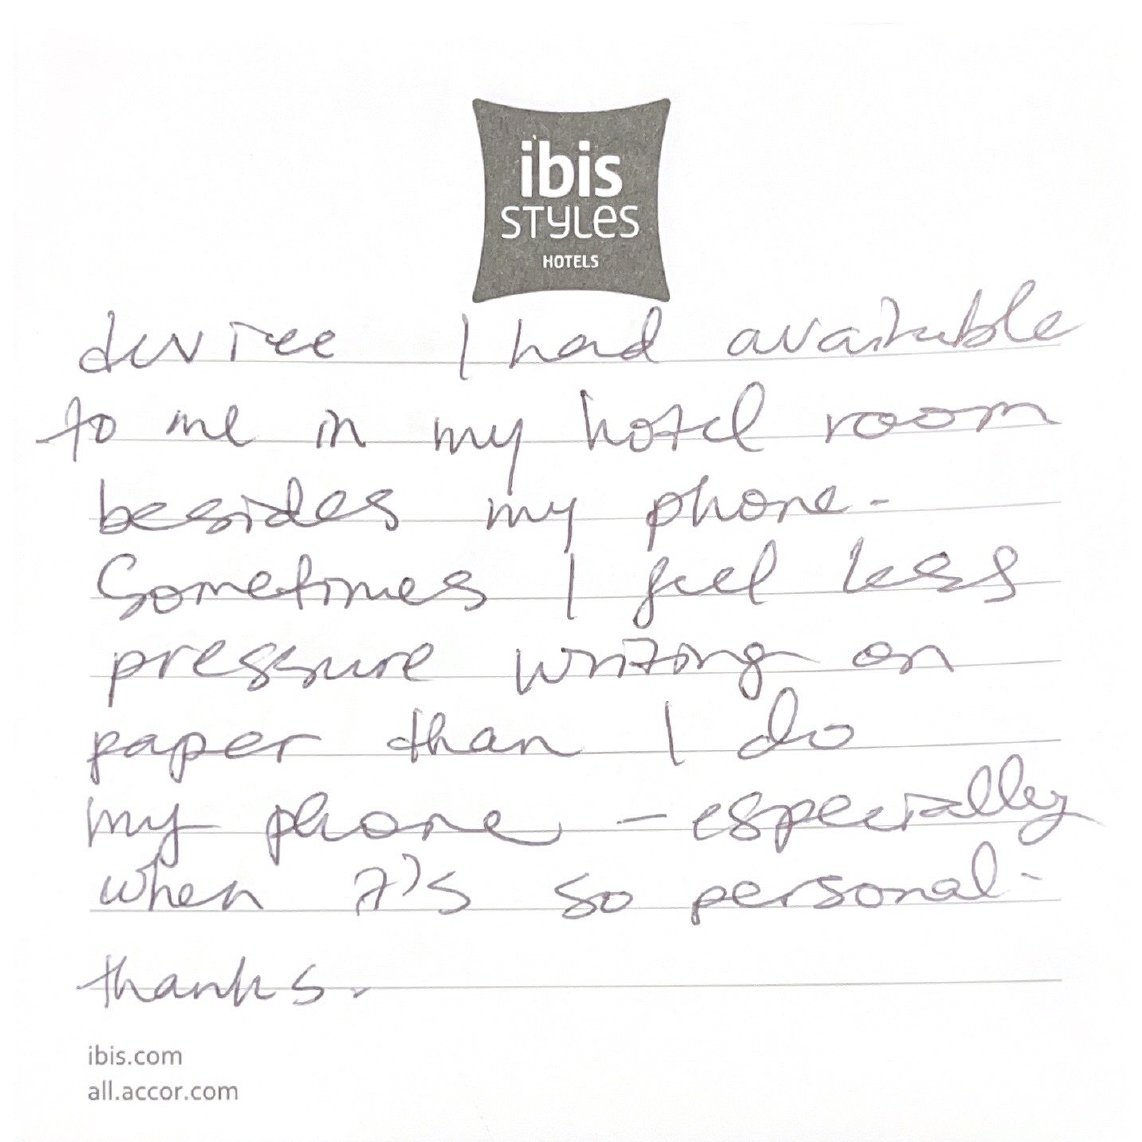 ibis
STYLES
HOTELS
device I had available
to me in my hotel room
besides my phone.
Sometimes I feel less
pressure writing on
paper than I do
my phone – especially
when it's so personal.
thanks.
ibis.com
all.accor.com